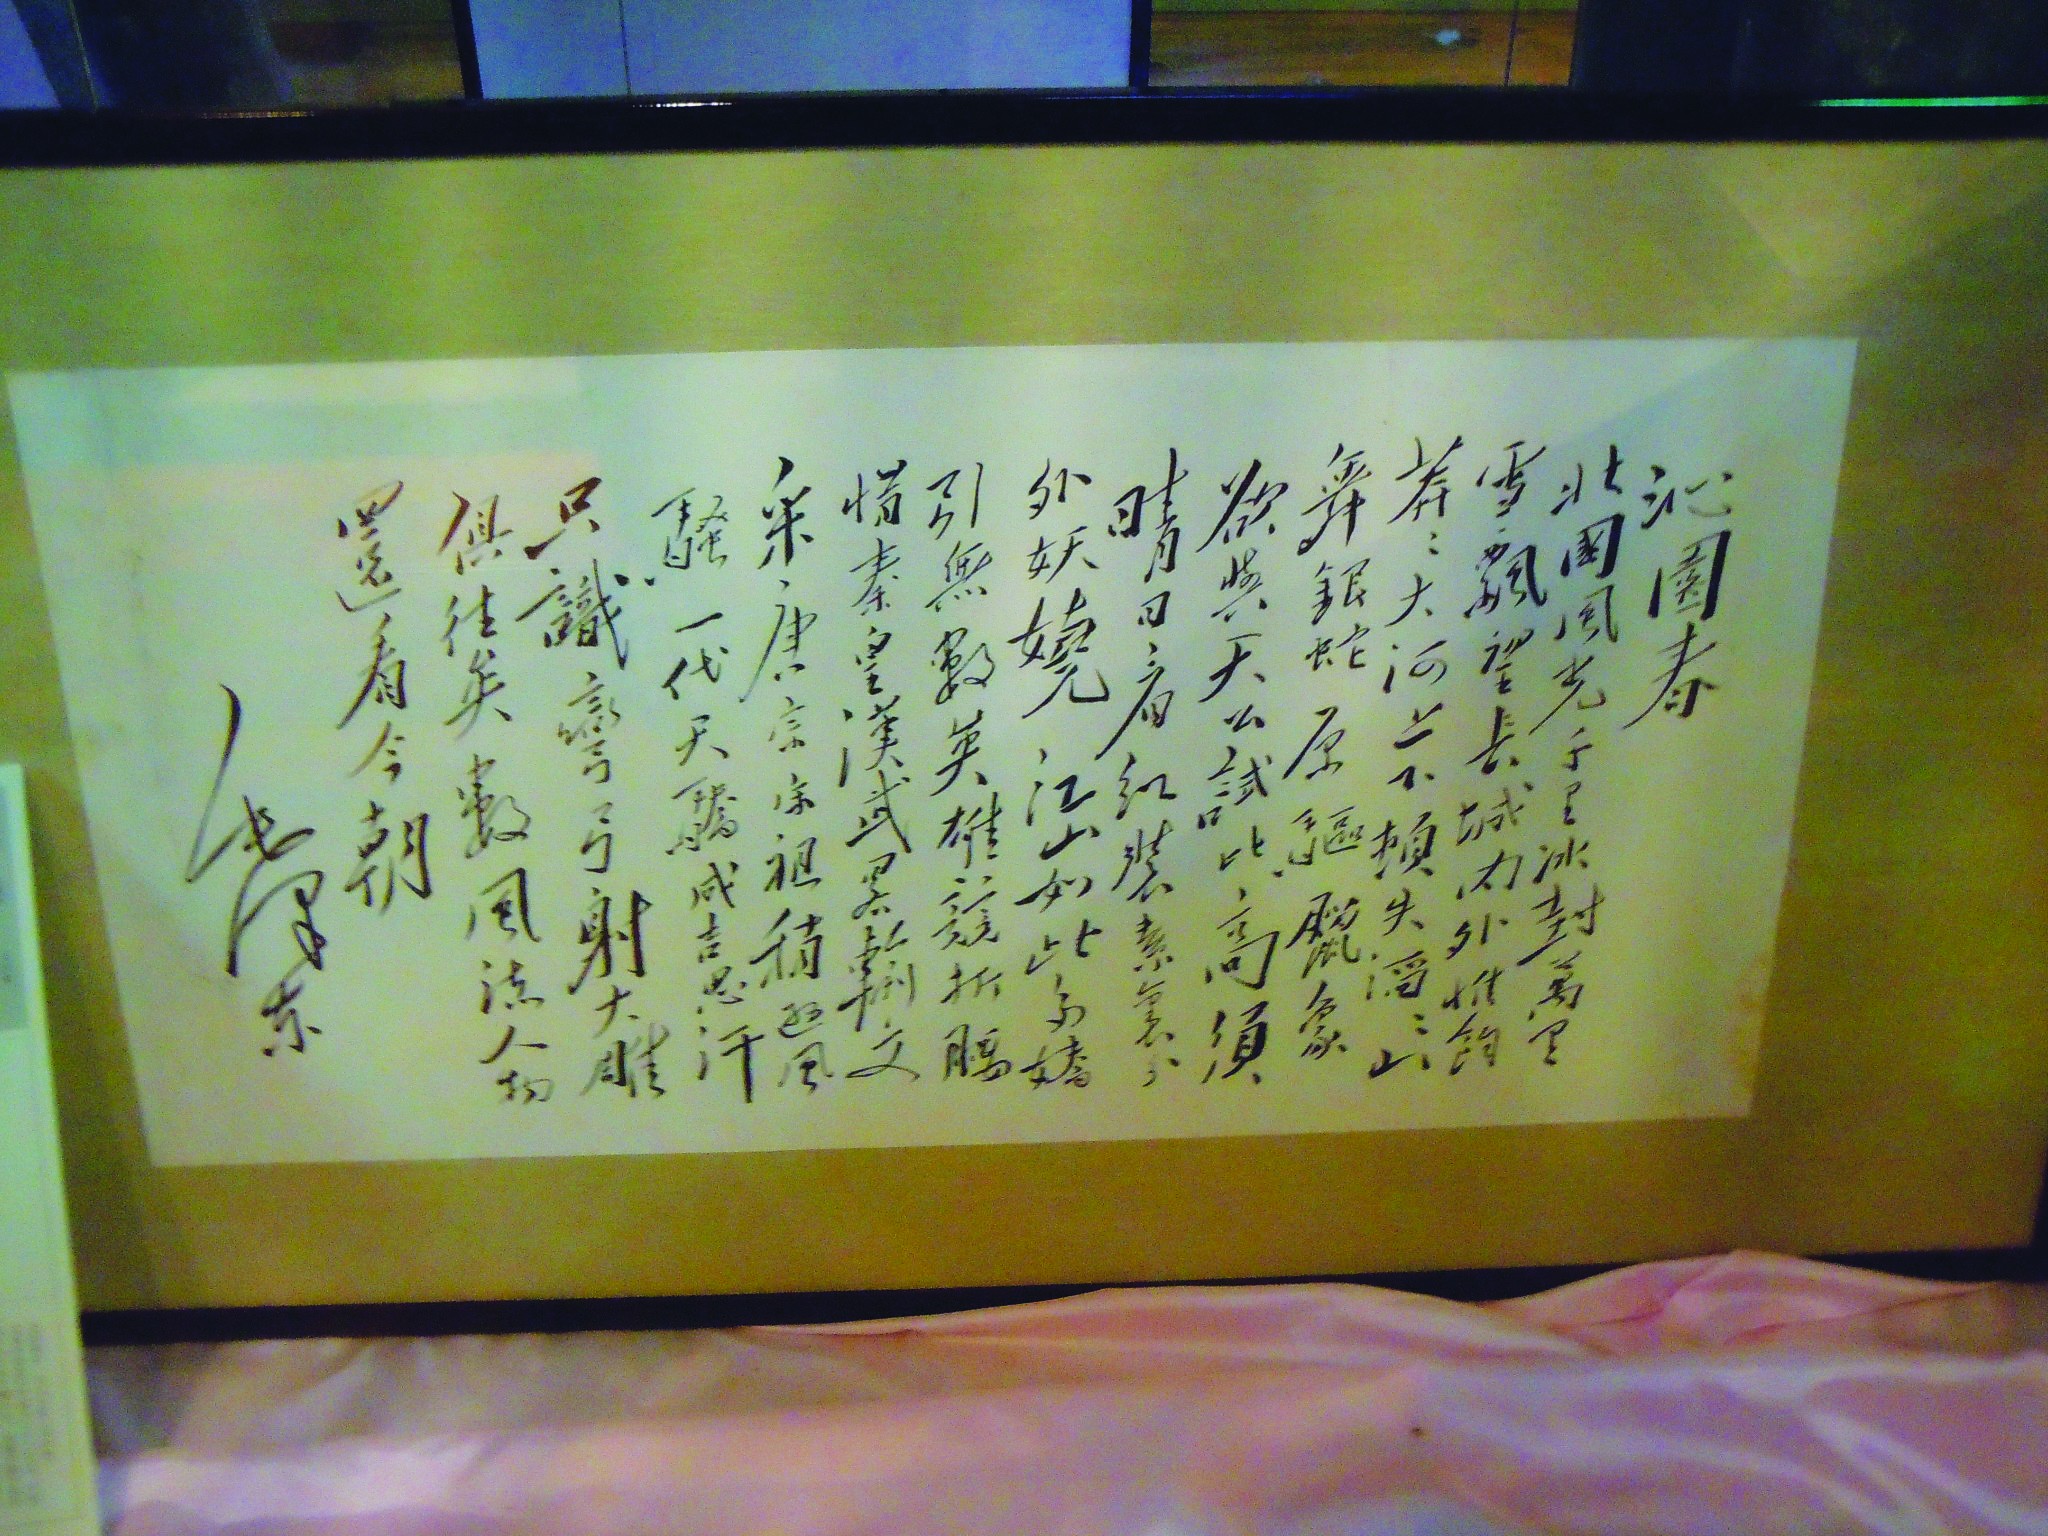 沁園春
北國風光千里冰封萬里
雪飄望長城內外惟餘
莽々大河上下頓失滔々山
舞銀蛇原驅臘象
欲與天公試比高須
晴日看紅裝素裹分
外妖嬈江山如此多嬌
引無數英雄競折腰
惜秦皇漢武略輸文
采唐宗宋祖稍遜風
騷一代天驕成吉思汗
只識彎弓射大雕
俱往矣數風流人物
還看今朝
毛澤東